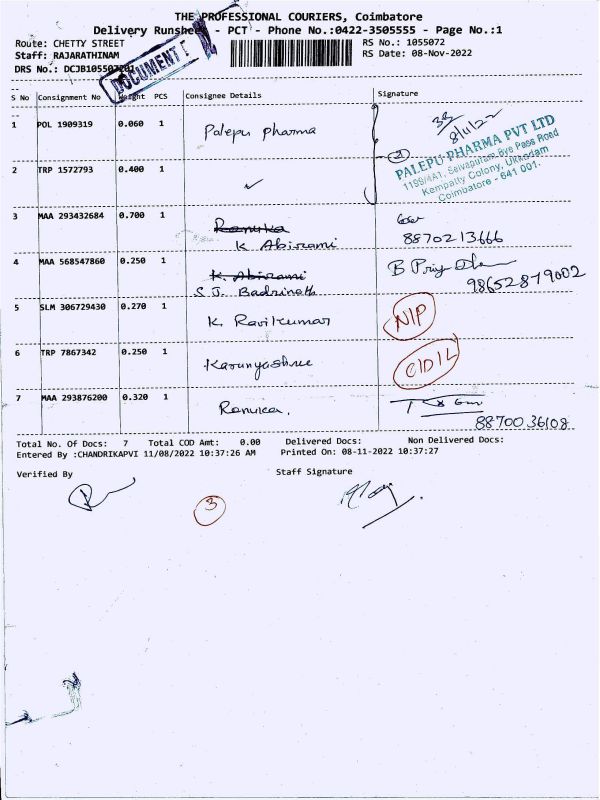 THE PROFESSIONAL COURIERS, Coimbatore
Delivery Runsheet - PCT - Phone No.:0422-3505555 - Page No.:1
Route: CHETTY STREET RS No.: 1055072
Staff: RAJARATHINAM RS Date: 08-Nov-2022
DRS No.: DCJB105507201
DOCUMENT
S No Consignment No Weight PCS Consignee Details Signature
1 POL 1909319 0.060 1 Palepu pharma
8/11/22
2 TRP 1572793 0.400 1 ✓
2 PALEPU PHARMA PVT LTD
1199/4A1, Selvapuram Bye Pass Road
Kempatty Colony, Ukkadam
Coimbatore - 641 001.
3 MAA 293432684 0.700 1 Ranuka
K Abirami 8870213666
4 MAA 568547860 0.250 1 K. Abirami B Priya
S J. Badrinath 98652879002
5 SLM 306729430 0.270 1 K. Ravikumar NIP
6 TRP 7867342 0.250 1 Karunyashree CIDIL
7 MAA 293876200 0.320 1 Ranuka.
8870036108
Total No. Of Docs: 7 Total COD Amt: 0.00 Delivered Docs: Non Delivered Docs:
Entered By :CHANDRIKAPVI 11/08/2022 10:37:26 AM Printed On: 08-11-2022 10:37:27
Verified By Staff Signature
3